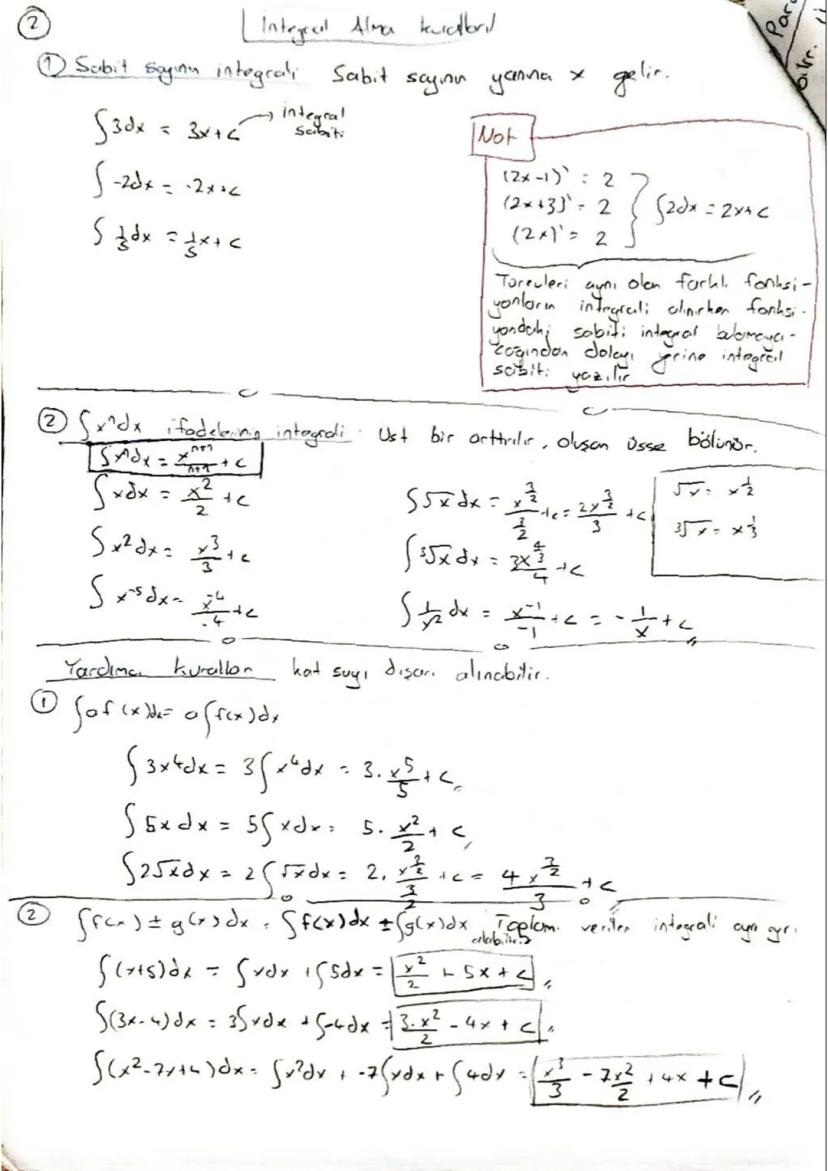 ②
İntegral Alma kuralları
① Sabit sayının integrali Sabit sayının yanına x gelir.
∫3dx = 3x+c → integral sabiti
∫-2dx = -2x+c
∫1/5 dx = 1/5 x + c
Not
(2x-1)' = 2
(2x+3)' = 2 } ∫2dx = 2x+c
(2x)' = 2
Türevleri aynı olan farklı fonksi-
yonların integrali alınırken fonksi-
yondaki sabiti integral bilemeye-
ceğinden dolayı yerine integral
sabiti yazılır
② ∫xⁿdx ifadelerinin integrali: Üst bir arttırılır, oluşan üsse bölünür.
∫xⁿdx = xⁿ⁺¹/n+1 + c
∫xdx = x²/2 + c
∫x²dx = x³/3 + c
∫x⁻⁵dx = x⁻⁴/-4 + c
∫√x dx = x^(3/2)/(3/2) + c = 2x^(3/2)/3 + c
∫³√x dx = 3x^(4/3)/4 + c
∫1/x² dx = x⁻¹/-1 + c = -1/x + c
√x = x^(1/2)
³√x = x^(1/3)
Yardımcı kurallar kat sayı dışarı alınabilir.
① ∫af(x)dx = a∫f(x)dx
∫3x⁴dx = 3∫x⁴dx = 3.x⁵/5 + c
∫5xdx = 5∫xdx = 5.x²/2 + c
∫2√xdx = 2∫√xdx = 2.x^(3/2)/(3/2) + c = 4x^(3/2)/3 + c
② ∫f(x) ± g(x)dx = ∫f(x)dx ± ∫g(x)dx Toplam verilen integrali ayrı ayrı
alabiliriz
∫(x+5)dx = ∫xdx + ∫5dx = x²/2 + 5x + c
∫(3x-4)dx = 3∫xdx + ∫-4dx = 3.x²/2 - 4x + c
∫(x²-7x+4)dx = ∫x²dx + -7∫xdx + ∫4dx = x³/3 - 7x²/2 + 4x + c